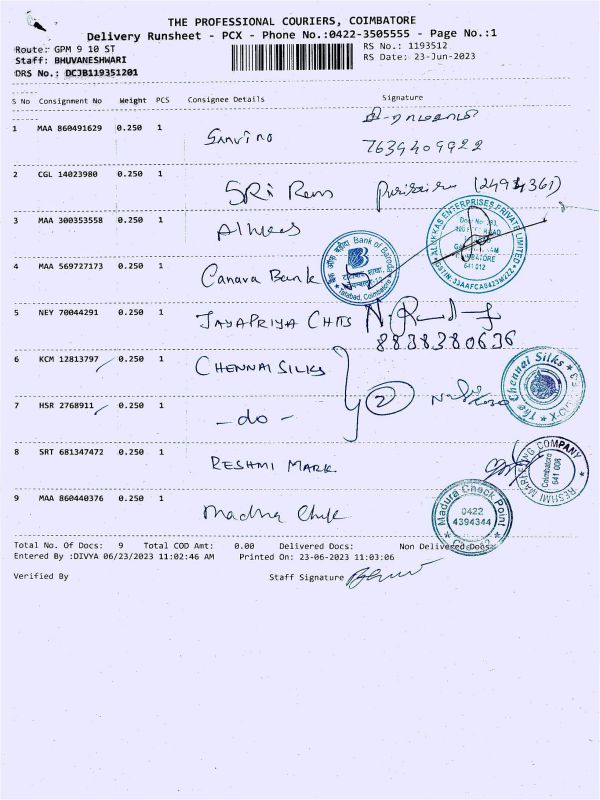 THE PROFESSIONAL COURIERS, COIMBATORE
Delivery Runsheet - PCX - Phone No.:0422-3505555 - Page No.:1
Route: GPM 9 10 ST
RS No.: 1193512
Staff: BHUVANESHWARI
RS Date: 23-Jun-2023
DRS No.: DCJB119351201
S No Consignment No Weight PCS Consignee Details Signature
1 MAA 860491629 0.250 1
7639409922
2 CGL 14023980 0.250 1 SRI Ram
3 MAA 300353558 0.250 1
ALUKKAS ENTERPRISES PRIVATE LIMITED
641 012
GSTIN: 33AAFCA0423M2ZZ
4 MAA 569727173 0.250 1 Canara Bank
Bank of Baroda
Tatabad, Coimbatore
5 NEY 70044291 0.250 1 JAYAPRIYA CHITS
8838380636
6 KCM 12813797 0.250 1 CHENNAI SILKS
2
The Chennai Silks
7 HSR 2768911 0.250 1 - do -
8 SRT 681347472 0.250 1 RESHMI MARK
RESHMI MARKETING COMPANY
Coimbatore
641 008
9 MAA 860440376 0.250 1 Madhura Chek
Madura Check Point
0422
4394344
Total No. Of Docs: 9 Total COD Amt: 0.00 Delivered Docs: Non Delivered Docs:
Entered By :DIVYA 06/23/2023 11:02:46 AM Printed On: 23-06-2023 11:03:06
Verified By Staff Signature